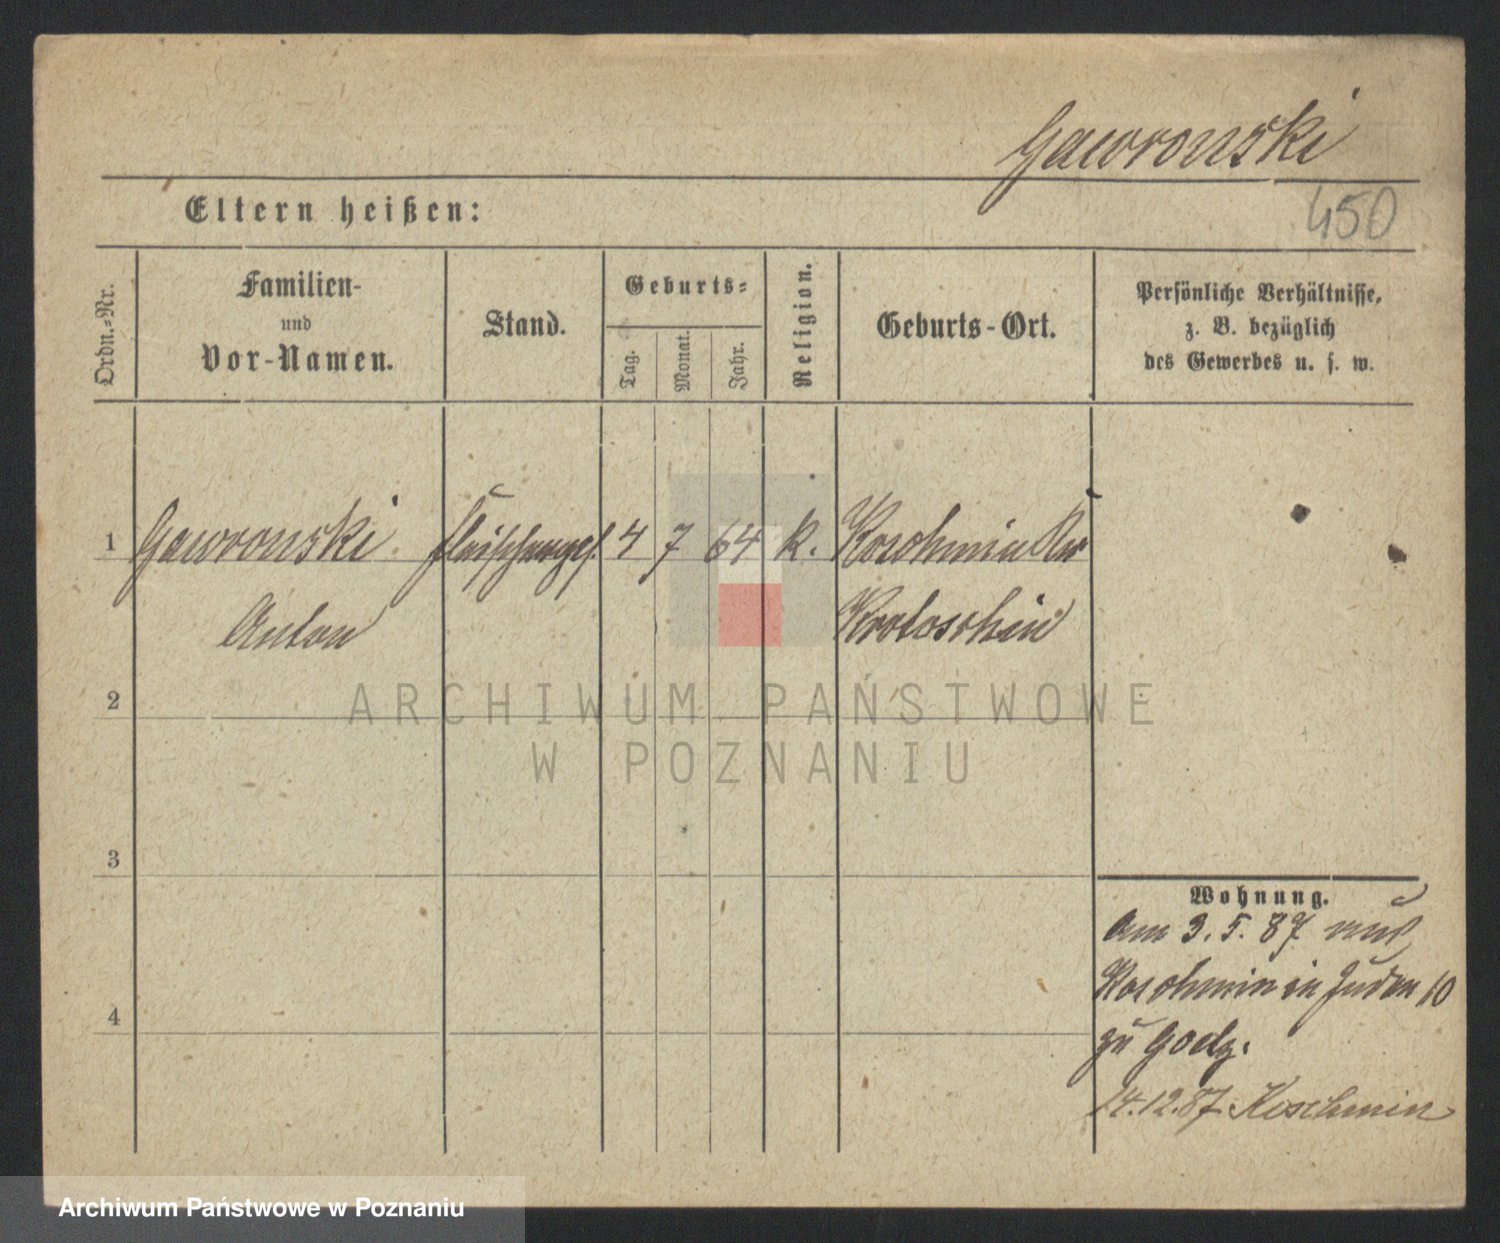 Gawronski
450
Eltern heißen:
Ordn.-Nr.
Familien-
und
Vor-Namen.
Stand.
Geburts-
Tag.
Monat.
Jahr.
Religion.
Geburts-Ort.
Persönliche Verhältnisse,
z. B. bezüglich
des Gewerbes u. s. w.
1 Gawronski Fleischerges. 4 7 64 k. Koschmin Kr
Anton Krotoschin
2
3
4
Wohnung.
Am 3. 5. 87 aus
Koschmin in Juden 10
zu
14.12.87 Koschmin
ARCHIWUM PAŃSTWOWE
W POZNANIU
Archiwum Państwowe w Poznaniu